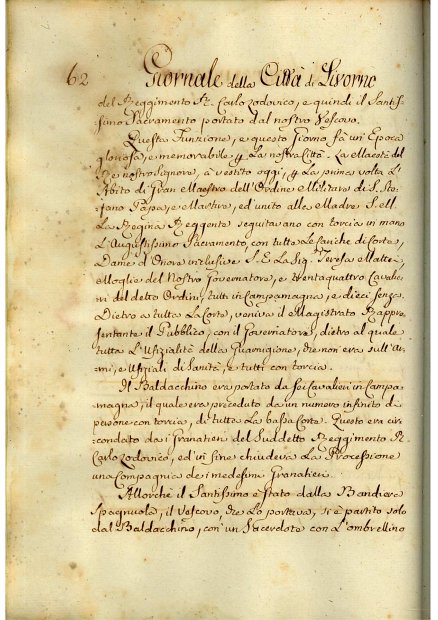 62 Giornale della Città di Livorno
del Reggimento Rl. Carlo Lodovico, e quindi il Santis-
simo Sacramento portato dal nostro Vescovo.
Questa Funzione, e questo Giorno fà un' Epoca
gloriosa, e memorabile p. La nostra Città. La Maestà del
Re nostro Signore, à vestito oggi, p. La prima volta L'
Abito di Gran Maestro dell' Ordine Militare di S. Ste-
fano Papa, e Martire, ed unito alla Madre S. M.
La Regina Reggente seguitavano con torcia in mano
L' Augustissimo Sacramento, con tutte Le Cariche di Corte,
Dame d' Onore inclusive S. E. La Sig.ra Teresa Mattei,
Moglie del Nostro Governatore, e trentaquattro Cavalie-
ri del detto Ordine, tutti in Campamagna, e dieci senza.
Dietro a tutta La Corte, veniva il Magistrato Rappre-
sentante il Pubblico, con il Governatore, dietro al quale
tutta L' Ufizialità della Guarnigione, che non era sull' Ar-
mi, e Ufiziali di Sanità, e tutti con torcia.
Il Baldacchino era portato da sei Cavalieri in Campa-
magna, il quale era preceduto da un numero infinito di
persone con torcia, di tutta La bassa Corte. Questo era cir-
condato da i Granatieri del Suddetto Reggimento Rl.
Carlo Lodovico, ed in fine chiudeva La Processione
una Compagnia de i medesimi Granatieri.
Allorchè il Santissimo è stato dalla Bandiera
Spagnuola, il Vescovo, che Lo portava, si è partito solo
dal Baldacchino, con un Sacerdote con L' ombrellino